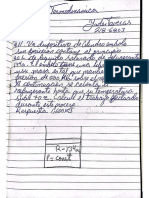 Termodinámica
Yinder Taveras
218-5907
9.11. Un dispositivo de cilindro embolo
sin fricción contiene al principio
50 L de líquido saturado de refrigerante
134a. El embolo tiene libertad
y su masa es tal que mantiene
presión de 500 kPa sobre el refrigerante
A continuación se calienta el
refrigerante hasta que su temperatura
sube 70 °C. Calcule el trabajo efectuado
durante este proceso
Respuesta
R-134a
P = const